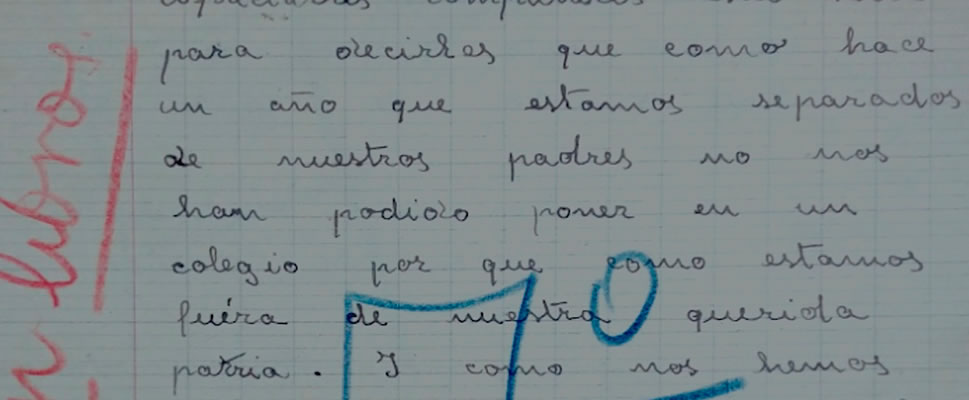 para decirles que como hace
un año que estamos separados
de nuestros padres no nos
han podido poner en un
colegio por que como estamos
fuéra de nuestra querida
patria. I como nos hemos
libros.